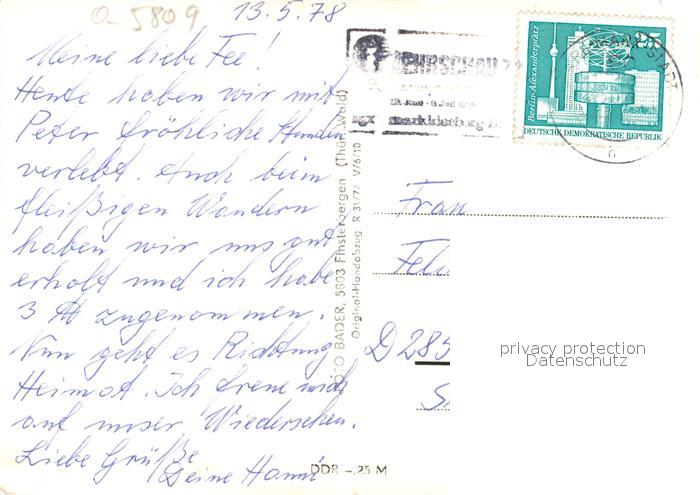 a 5809
13.5.78
Meine liebe Fee!
Heute haben wir mit
Peter fröhliche Stunden
verlebt. Auch beim
fleißigen Wandern
haben wir uns gut
erholt und ich habe
3 ℔ zugenommen.
Nun geht es Richtung
Heimat. Ich freue mich
auf unser Wiedersehen.
Liebe Grüße
Deine Hanni
BADER, 5803 Finsterbergen (Thür. Wald)
Original-Handabzug R 31/77 V/6/10
DDR -.25 M
agra
markkleeberg
Berlin-Alexanderplatz
25
DEUTSCHE DEMOKRATISCHE REPUBLIK
Frau
D 285
privacy protection
Datenschutz